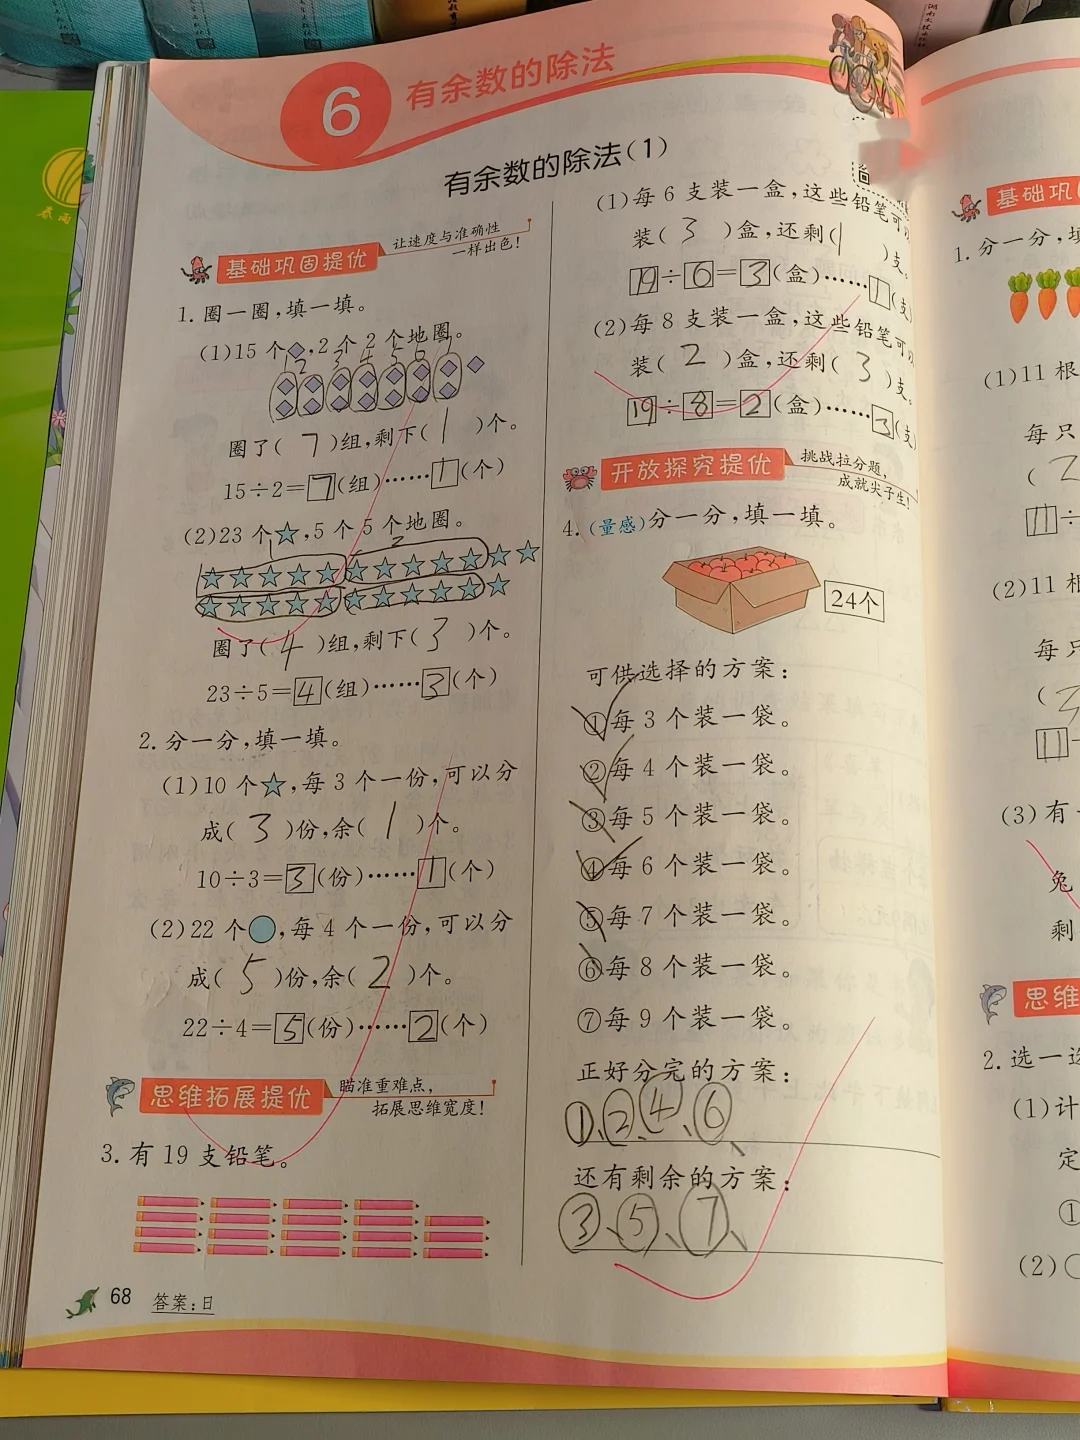 春雨
6 有余数的除法
有余数的除法(1)
基础巩固提优
让速度与准确性
一样出色!
1. 圈一圈,填一填。
(1)15 个◆,2 个 2 个地圈。
1 2 3 4 5 6 7
圈了( 7 )组,剩下( 1 )个。
15÷2=7(组)……1(个)
(2)23 个☆,5 个 5 个地圈。
1 2
圈了( 4 )组,剩下( 3 )个。
23÷5=4(组)……3(个)
2. 分一分,填一填。
(1)10 个☆,每 3 个一份,可以分
成( 3 )份,余( 1 )个。
10÷3=3(份)……1(个)
(2)22 个○,每 4 个一份,可以分
成( 5 )份,余( 2 )个。
22÷4=5(份)……2(个)
思维拓展提优
瞄准重难点,
拓展思维宽度!
3. 有 19 支铅笔。
68 答案:日
(1)每 6 支装一盒,这些铅笔可以
装( 3 )盒,还剩( 1 )支。
19÷6=3(盒)……1(支)
(2)每 8 支装一盒,这些铅笔可以
装( 2 )盒,还剩( 3 )支。
19÷8=2(盒)……3(支
开放探究提优
挑战拉分题,
成就尖子生!
4. (量感)分一分,填一填。
24个
可供选择的方案:
①每 3 个装一袋。
②每 4 个装一袋。
③每 5 个装一袋。
④每 6 个装一袋。
⑤每 7 个装一袋。
⑥每 8 个装一袋。
⑦每 9 个装一袋。
正好分完的方案:
①、②、④、⑥、
还有剩余的方案:
③、⑤、⑦、
基础巩
1. 分一分,填
(1)11 根
每只
( 2
11÷
(2)11 根
每只
( 3
11
(3)有一
兔
剩
思维
2. 选一选
(1)计
定
①
(2)○